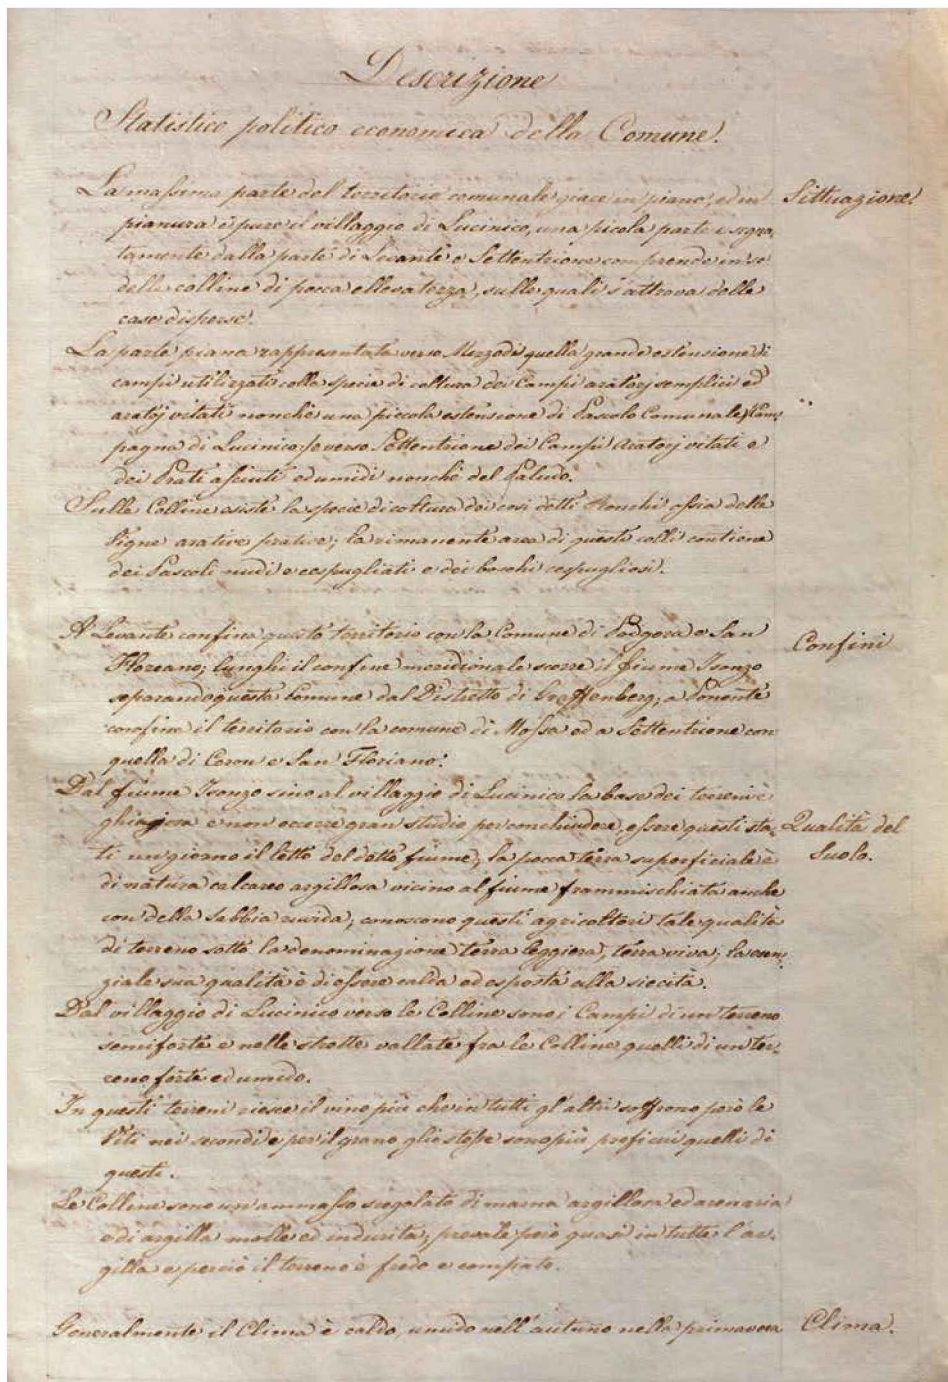 Descrizione
Statistico politico economica della Comune.
La massima parte del territorio comunale giace in piano, ed in Sittuazione
pianura è pure il villaggio di Lucinico, una picola parte e segna,
tamente dalla parte di Levante e Settentrione comprende in se
delle colline di pocca ellevatezza, sulle quali s'attrova delle
case disperse.
La parte piana rappresentata verso Mezzodi quella grande estensione di
campi utilizzati colla specie di coltura dei Campi aratorj semplici ed
aratorj vitati nonchè una piccola estensione di Pascolo Comunale Cam,
pagna di Lucinico e verso Settentrione dei Campi aratorj vitati e
dei Prati asciuti ed umidi nonchè del Paludo.
Sulle Colline esiste la specie di coltura dei cosi detti Ronchi ossia delle
Vigne arative prative; la rimanente area di questi colli contiene
dei Pascoli nudi e cespugliati e dei boschi cespugliosi.
A Levante confina questo territorio con la Comune di Podgora e San Confini
Floreano; lunghi il confine meridionale scorre il fiume Isonzo
separando questa Comune dal Distretto di Graffenberg; a Ponente
confina il territorio con la comune di Mossa ed a Settentrione con
quella di Cerou e San Floriano.
Dal fiume Isonzo sino al villaggio di Lucinico la base dei terreni è
ghiajosa e non occorre gran studio per conchiudere, essere questi sta, Qualità del
ti un giorno il letto del detto fiume; la pocca terra superficiale è Suolo.
di natura calcareo argillosa vicino al fiume frammischiata anche
con della sabbia ruvida; conoscono questi agricoltori tale qualità
di terreno sotto la denominazione terra leggiera, terra viva; la esen,
ziale sua qualità è di essere calda ed esposta alla siccità.
Dal villaggio di Lucinico verso le Colline sono i Campi di un terreno
semiforte e nelle strette vallate fra le Colline quelli di un ter,
reno forte ed umido.
In questi terreni riesce il vino più che in tutti gl'altri soffrono però le
Viti nei secondi e per il grano gli stesse sono più proficui quelli di
questi.
Le Colline sono un ammasso sregolato di marna argillosa ed arenaria
e di argilla molle ed indurita; prevale però quasi in tutte l'ar,
gilla e perciò il terreno è fredo e compato.
Generalmente il Clima è caldo, umido nell'autuño nella primavera Clima.